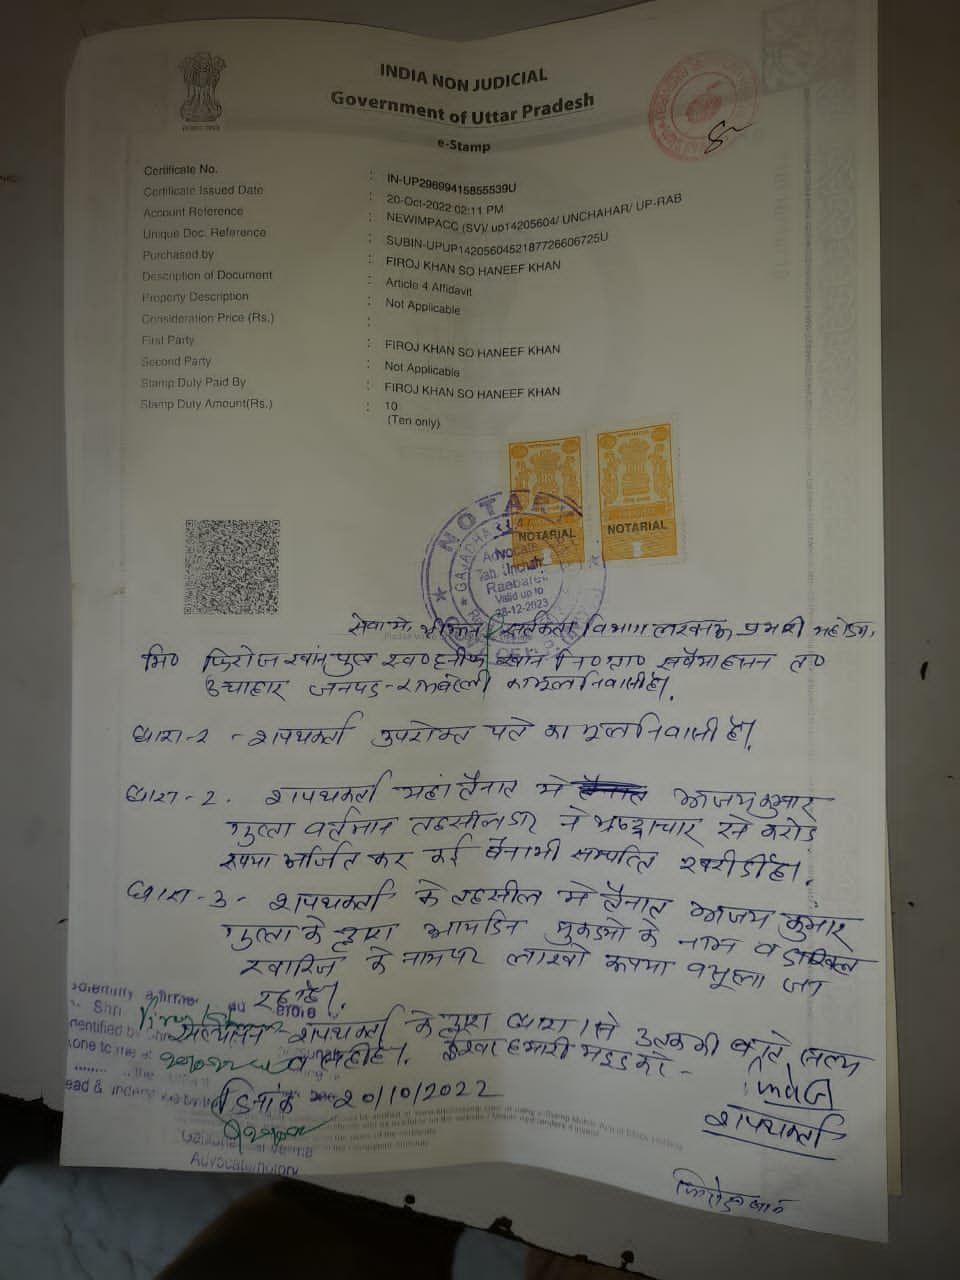 INDIA NON JUDICIAL
Government of Uttar Pradesh
e-Stamp
Certificate No. : IN-UP29699415855539U
Certificate Issued Date : 20-Oct-2022 02:11 PM
Account Reference : NEWIMPACC (SV)/ up14205604/ UNCHAHAR/ UP-RAB
Unique Doc. Reference : SUBIN-UPUP1420560452187726606725U
Purchased by : FIROJ KHAN SO HANEEF KHAN
Description of Document : Article 4 Affidavit
Property Description : Not Applicable
Consideration Price (Rs.) :
First Party : FIROJ KHAN SO HANEEF KHAN
Second Party : Not Applicable
Stamp Duty Paid By : FIROJ KHAN SO HANEEF KHAN
Stamp Duty Amount(Rs.) : 10
(Ten only)
NOTARIAL
NOTARIAL
NOTARY
Advocate
Teh. Unchahar
Raebareli
Valid up to
28-12-2023
सेवा मे, श्रीमान सतर्कता विभाग लखनऊ प्रभारी महोदय,
फिरोज खान पुत्र स्व० हनीफ खान नि० ग्रा० त०
ऊंचाहार जनपद-रायबरेली का मूल निवासी है।
धारा-१ - शपथकर्ता उपरोक्त पते का मूल निवासी है।
धारा-2. शपथकर्ता यहां तैनात मे अजय कुमार
गुप्ता वर्तमान तहसीलदार ने भ्रष्टाचार से करोड़
रुपया अर्जित कर कई बेनामी सम्पत्ति खरीदी है।
धारा-3- शपथकर्ता के तहसील मे तैनात अजय कुमार
गुप्ता के द्वारा आयदिन मुकदमो के नाम व दाखिल
खारिज के नाम पर लाखो रूपया वसूला जा
रहा है।
सत्यापन शपथकर्ता के द्वारा धारा 1 से 3 तक की बाते सत्य
व सही है। ईश्वर हमारी मदद करे -
दिनांक 20/10/2022
शपथकर्ता
Advocate/notary